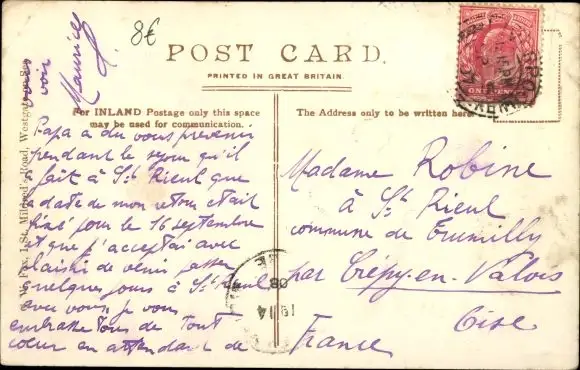 8€
POST CARD.
PRINTED IN GREAT BRITAIN.
For INLAND Postage only this space
may be used for communication.
The Address only to be written here.
Papa a dû vous prévenir
pendant le séjour qu'il
a fait à St Rieul que
la date de mon retour était
fixé pour le 16 septembre
et que j'acceptai avec
plaisir de venir passer
quelques jours à St Rieul
avec vous, je vous
embrasse tous de tout
cœur en attendant de
vous
voir
Maurice
Madame Robine
à St Rieul
commune de Trumilly
par Crépy-en-Valois
Oise
France
St. Mildred's Road, Westgate
ONE PENNY
08